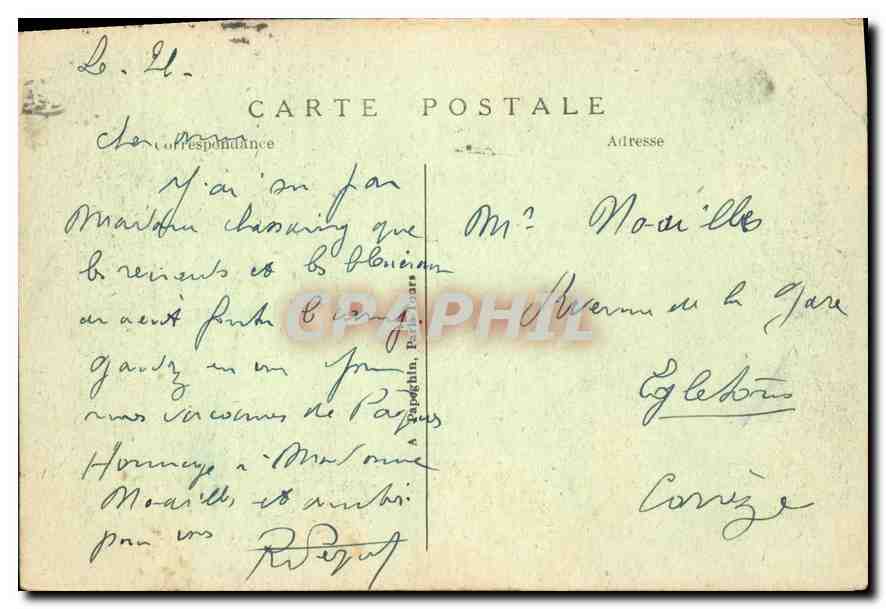 Le. 21.
CARTE POSTALE
Correspondance
Adresse
Cher ami
J'ai su par
Madame Chassaing que
les et les
avaient le camp.
Gardez en un pour
mes vacances de Pâques
Hommage à Madame
Noailles et amitié
pour vous
Mr Noailles
Avenue de la Gare
Egletons
Corrèze
A. Papeghin, Paris-Tours
CPAPHIL